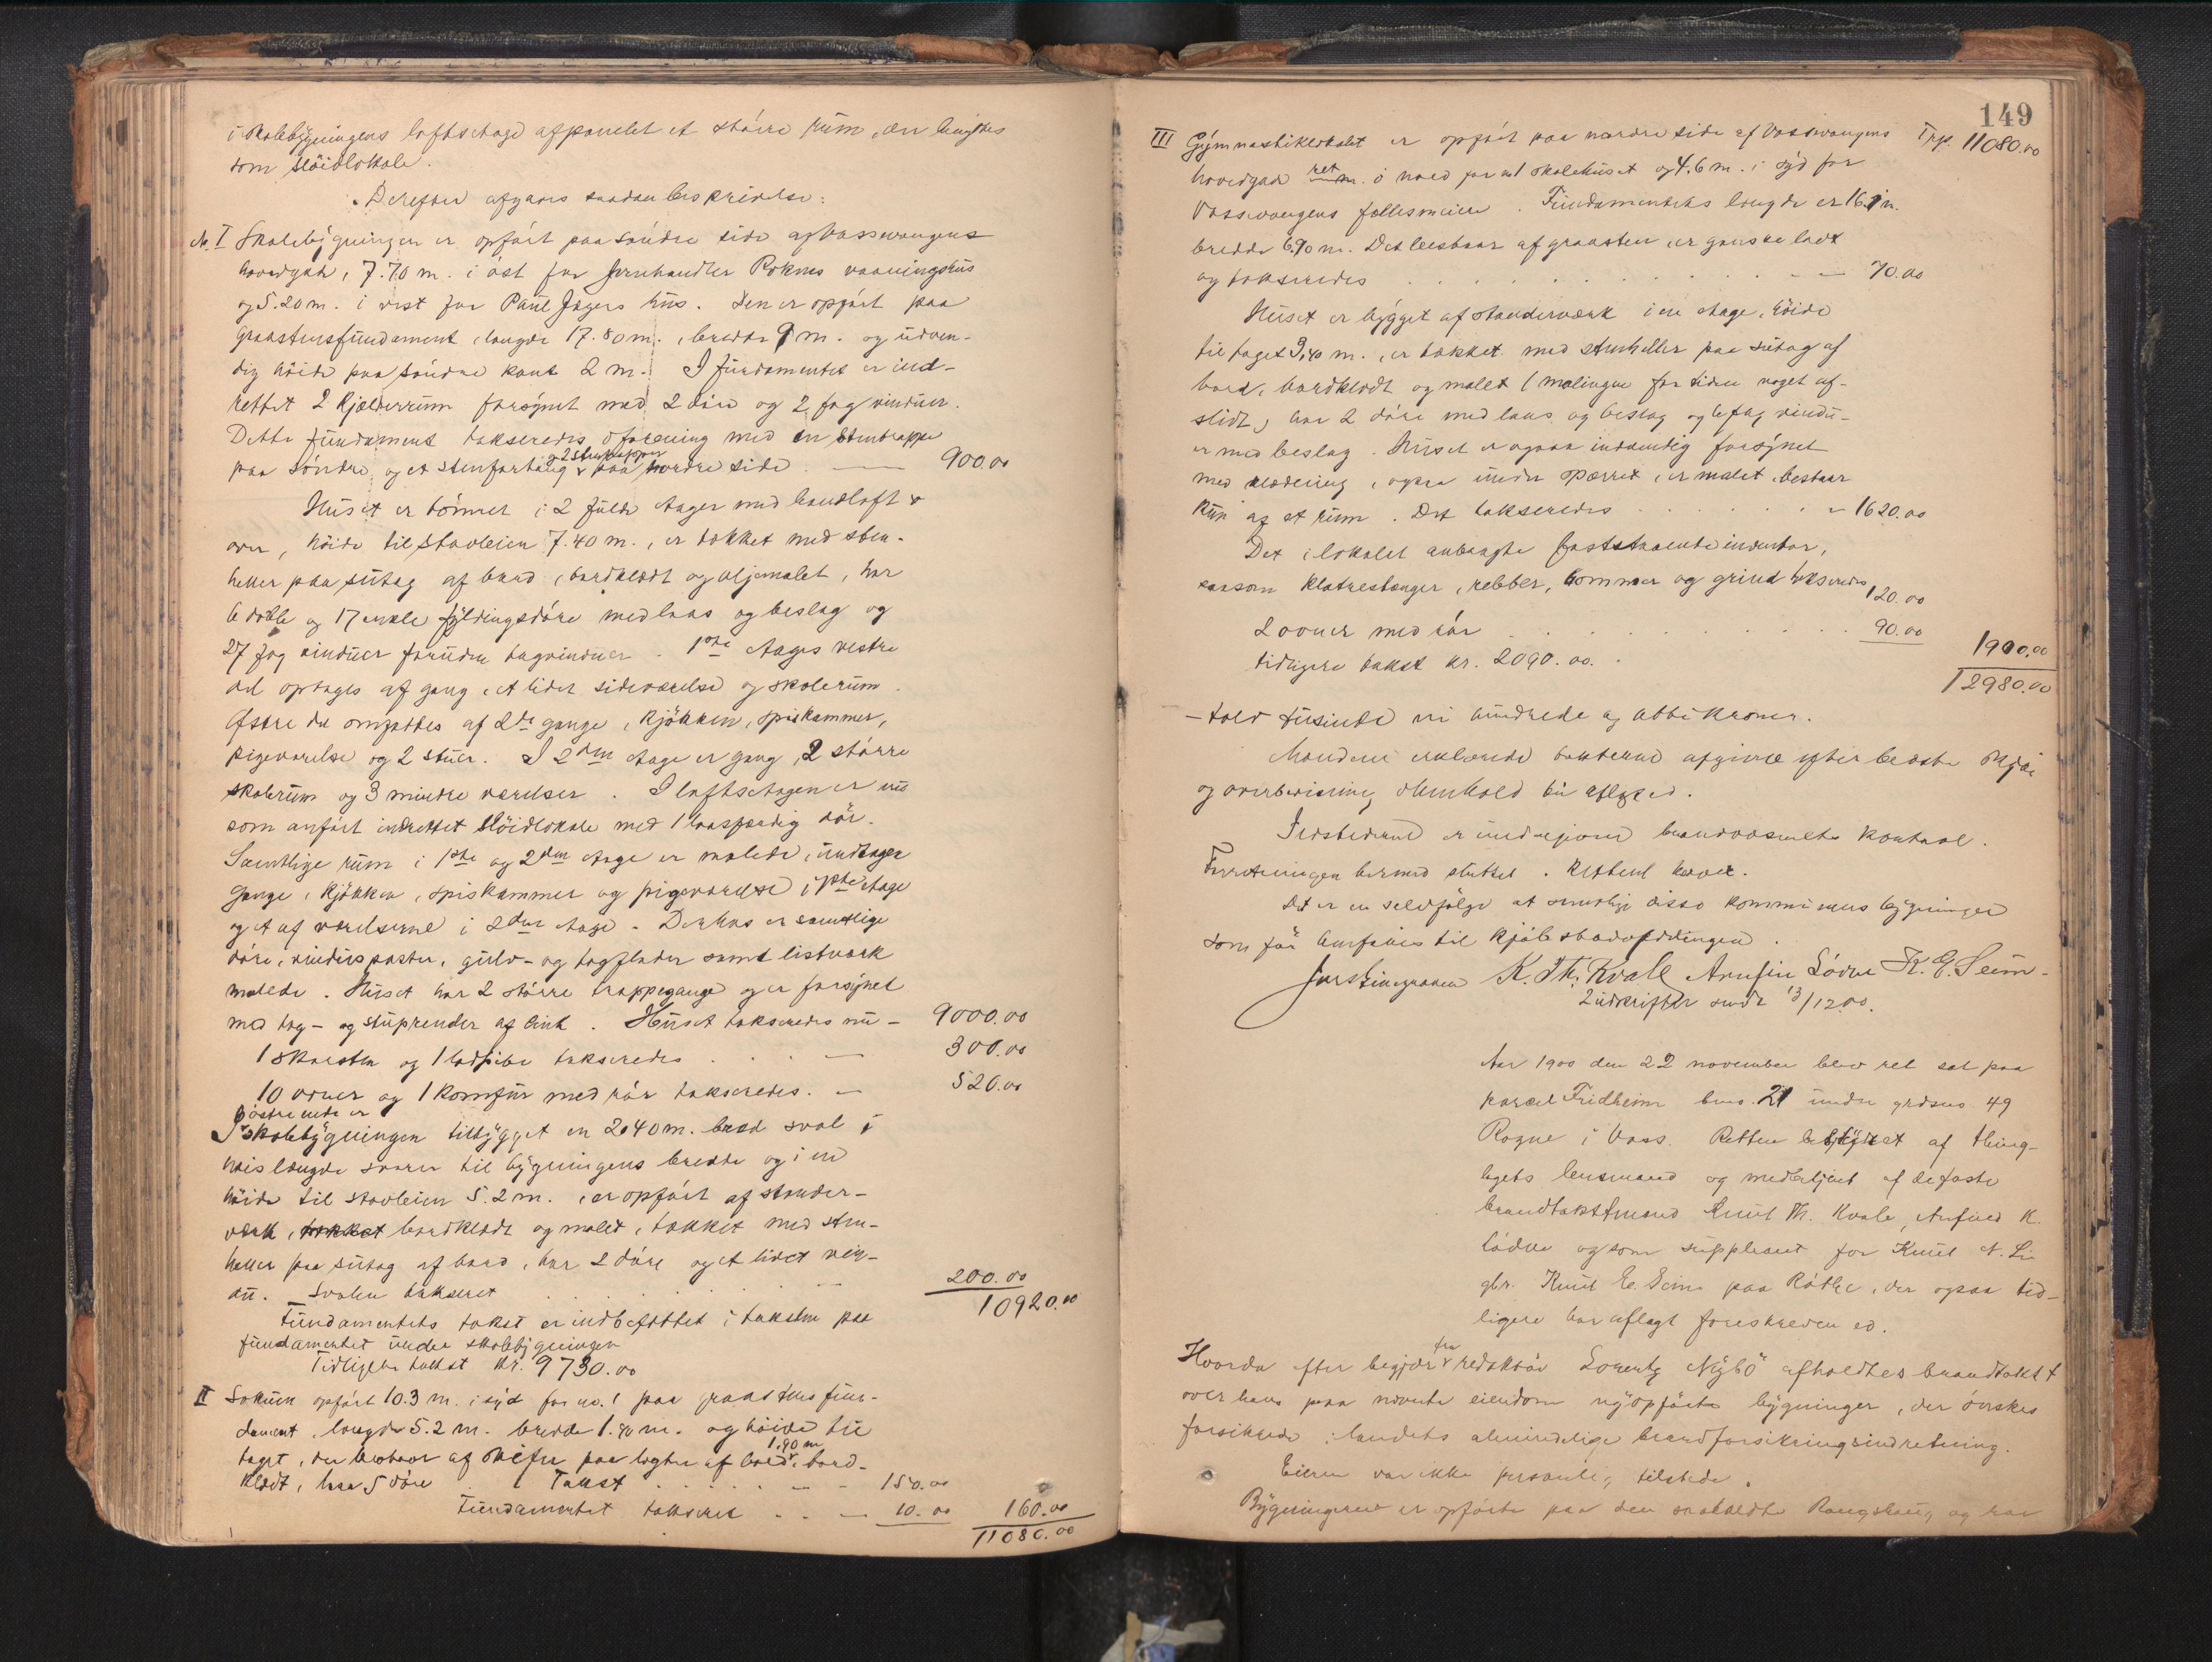 i skolebygningens loftsetage afpanelet et større rum, der benyttes
som slöidlokale.
Derefter afgaves saadan beskrivelse:
No. I Skolebygningen er opfört paa söndre side af Vossevangens
hovedgade, 7.70 m. i öst for Jernhandler Roknes vaaningshus
og 5.20 m. i vest for Paul Jægers hus. Den er opfört paa
graastensfundament, længde 17.80 m., bredde 9 m. og udven-
dig höide paa söndre kant 2 m. I fundamentet er ind-
rettet 2 kjælderrum forsynet med 2 döre og 2 fag vinduer.
Dette fundament takseredes i forening med en Stentrappe
paa söndre og et stenfortaug og 2 stentrapper paa nordre side — 900.00
Huset er tömret i 2 fulde Etager med
over, höide til Stavleien 7.40 m., er tækket med sten-
heller paa sutag af bord, bordklædt og oljemalet, har
6 doble og 17 enkle fyldingsdöre med laas og beslag og
27 fag vinduer foruden tagvinduer. 1ste Etages vestre
del optages af gang, et lidet sideværelse og skolerum.
Østre del omfattes af 2de gange, kjökken, spiskammer,
pigeværelse og 2 stuer. I 2den Etage er gang, 2 större
skolerum og 3 mindre værelser. I loftsetagen er nu
som anfört indrettet Slöidlokale med 1 laasfærdig dör.
Samtlige rum i 1ste og 2den Etage er malede, undtagen
gange, kjökken, spiskammer og pigeværelse i 1ste Etage
og et af værelserne i 2den Etage. Derhos er samtlige
döre, vinduesposter, gulv- og tagflader samt listværk
malede. Huset har 2 större trappegange og er forsynet
med tag- og stuprender af zink. Huset takseredes nu — 9000.00
1 skorsten og 1 lodpibe takseredes . . . — 300.00
10 ovner og 1 komfur med rör takseredes. — 520.00
I skolebygningen östre ende er tilbygget en 2.40 m. bred sval i
hvis længde svarer til bygningens bredde og i en
höide til stavleien 5.2 m., er opfört af stander-
værk, bordklædt og malet, tækket med sten-
heller paa sutag af bord, har 2 döre og et lidet vin-
du. Svalen takseret . . . 200.00
10920.00
Fundamentets takst er indbefattet i taksten paa
fundamentet under skolebygningen
Tidligere takst Kr. 9730.00
II opfört 10.3 m. i syd for no. 1 paa graastensfun-
dament, længde 5.2 m. bredde 1.90 m. og höide til
taget 1.90 m, der bestaar af skifer paa lægter af bord, bord-
klædt, har 5 döre. Takst . . . 150.00
Fundamentet takseret . . — 10.00 160.00
11080.00
149
III Gymnastiklokalet er opfört paa nordre side af Vossevangens Trp. 11080.00
hovedgade ret i nord for skolehuset og 4.6 m. i syd for
Vossevangens fællesmeieri. Fundamentets længde er 16.1 m.
bredde 6.90 m. Det bestaar af graasten, er ganske lavt
og takseredes . . . — 70.00
Huset er bygget af standerværk i en etage, höide
til taget 3.40 m., er tækket med stenheller paa sutag af
bord, bordklædt og malet (malingen for tiden noget af-
slidt) har 2 döre med laas og beslag og 6 fag vindu-
er med beslag. Huset er ogsaa indvendig forsynet
med klædning, ogsaa under sperret, er malet, bestaar
kun af et rum. Det takseredes . . . - 1620.00
Det i lokalet anbragte faststaaende inventar,
saasom klatrestænger, ribber, bommer og grind takseredes 120.00
2 ovner med rör . . . 90.00 1900.00
tidligere takst kr. 2090.00. 12980.00
– tolv tusinde ni hundrede og otti kroner.
Mændene erklærede taksterne afgivne efter bedste skjön
og overbevisning i henhold til aflagt ed.
Ildstederne er undergivne brandvæsenets kontrol.
Forretningen hermed sluttet. Retten hævet.
Det er en selvfölge at samtlige disse kommunens bygninger
som för henföres til kjöbstadafdelingen.
K. Th. Kvale Anfin Lödve K. E. Seim
2 udskrifter sendt 13/12 00.
Aar 1900 den 22 november blev ret sat paa
parcel Fridheim bno. 21 under grdsno 49
Rogne i Voss. Retten betjent af thing-
lagets lensmand og medbetjent af de faste
brandtakstmænd Knut Th. Kvale, Anfind K.
Lödve og som suppleant for Knut N. Li
gbr. Knut E. Seim paa Röthe, der ogsaa tid-
ligere har aflagt foreskreven ed.
Hvorda efter begjær fra redaktör Lorentz Nybö afholdtes brandtakst
over hans paa nævnte eiendom nyopförte bygninger, der önskes
forsikrede i landets almindelige brandforsikringsindretning.
Eieren var ikke personlig tilstede.
Bygningerne er opförte paa den saakaldte Rongshaug og har